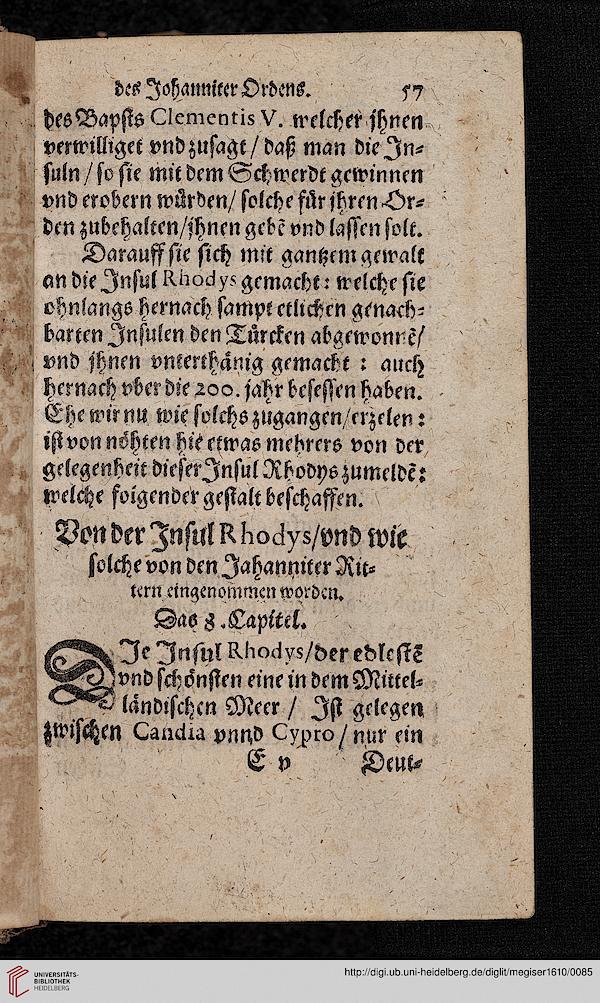 des Johanniter Ordens. 57
des Bapsts Clementis V. welcher jhnen
verwilliget vnd zusagt / daß man die In-
suln / so sie mit dem Schwerdt gewinnen
vnd erobern würden / solche für jhren Or-
den zubehalten / jhnen gebē vnd lassen solt.
Darauff sie sich mit gantzem gewalt
an die Insul Rhodys gemacht : welche sie
ohnlangs hernach sampt etlichen genach-
barten Insulen den Türcken abgewonnē /
vnd jhnen vnterthänig gemacht : auch
hernach vber die 200. jahr besessen haben.
Ehe wir nu wie solchs zugangen / erzelen :
ist von nöhten hie etwas mehrers von der
gelegenheit dieser Insul Rhodys zumeldē :
welche foigender gestalt beschaffen.
Von der Insul Rhodys / vnd wie
solche von den Jahanniter Rit-
tern eingenommen worden.
Das 8. Capitel.
DIe Insul Rhodys / der edlestē
vnd schönsten eine in dem Mittel-
ländischen Meer / Ist gelegen
zwischen Candia vnnd Cypro / nur ein
E v Deut-
UNIVERSITÄTS-
BIBLIOTHEK
HEIDELBERG
http://digi.ub.uni-heidelberg.de/diglit/megiser1610/0085